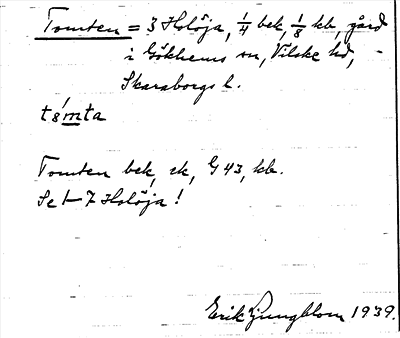 Tomten = 3 Holöja, 1/4 bek, 1/8 kb, gård
i Gökhems sn, Vilske hd, -
Skaraborgs l.
Tomten bek, sk, G 43, kb.
Se 1-7 Holöja!
Erik Ljungblom 1939.